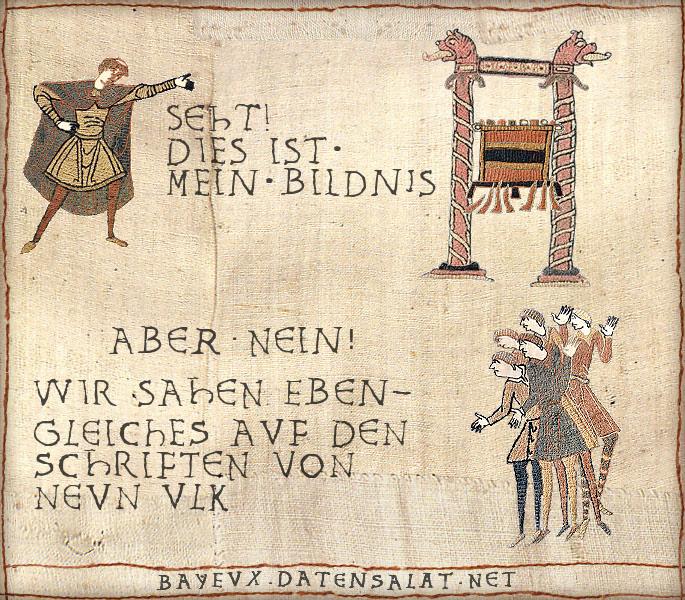 SEhT!
DIES IST·
MEIN·BILDNIS
ABER·NEIN!
WIR SAhEN EBEN-
GLEICHES AVF DEN
SChRIFTEN VON
NEVN VLK
BAYEVX.DATENSALAT.NET